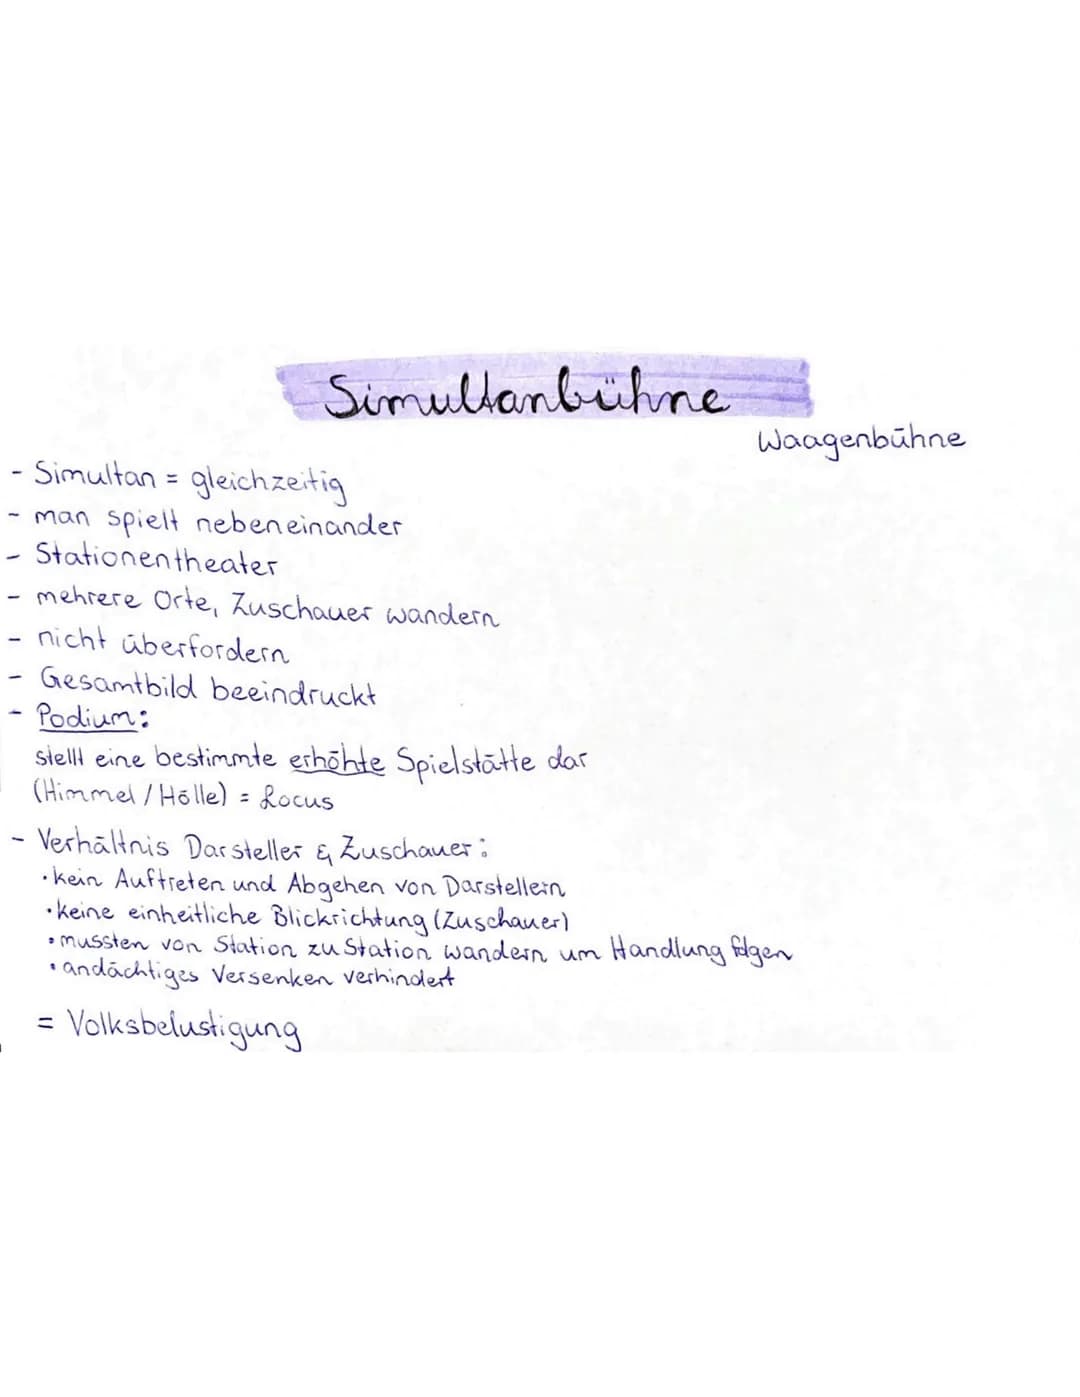 Simultanbühne
Waagenbühne
- Simultan = gleichzeitig
- man spielt nebeneinander
- Stationentheater
- mehrere Orte, Zuschauer wandern
- nicht überfordern
- Gesamtbild beeindruckt
- Podium:
stellt eine bestimmte erhöhte Spielstätte dar
(Himmel / Hölle) = Locus
- Verhältnis Darsteller & Zuschauer:
• kein Auftreten und Abgehen von Darstellern
• keine einheitliche Blickrichtung (Zuschauer)
• mussten von Station zu Station wandern um Handlung folgen
• andächtiges Versenken verhindert
= Volksbelustigung